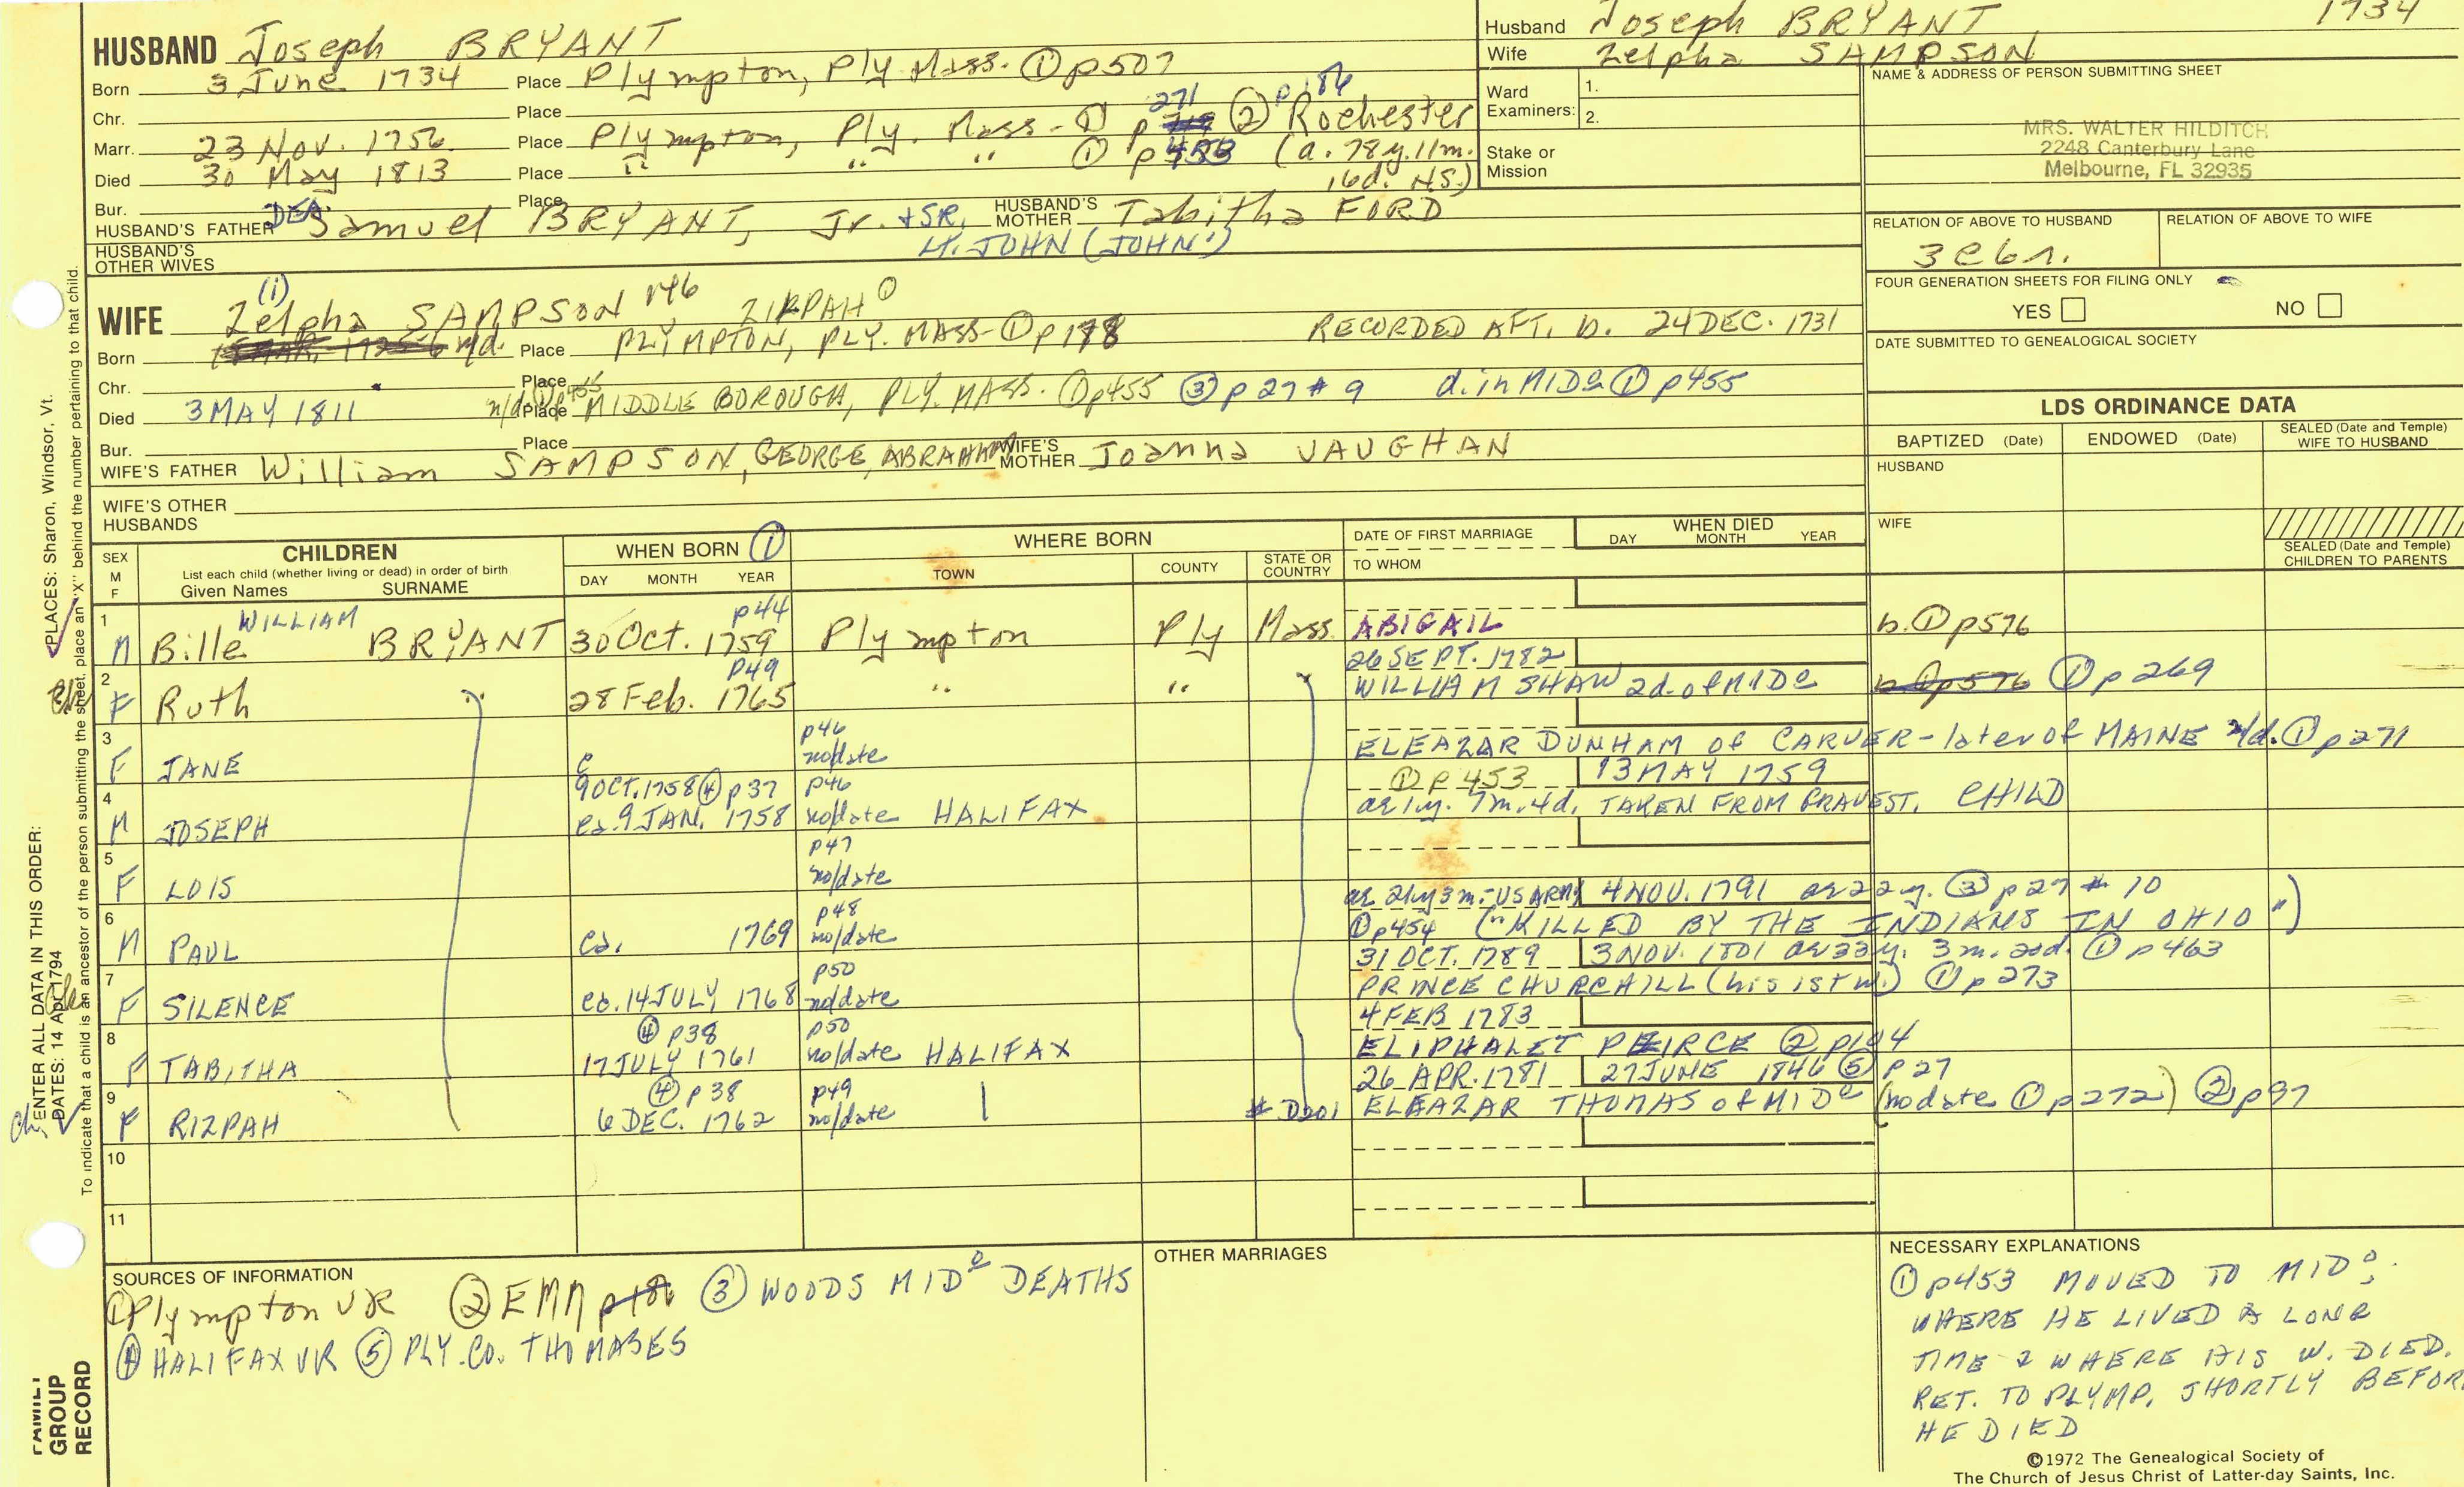 HUSBAND Joseph BRYANT
Born 3 June 1734 Place Plympton, Ply Mass. ① p507
Chr. Place
271 p186
Marr. 23 Nov. 1756 Place Plympton, Ply. Mass- ① p ② Rochester
Died 30 May 1813 Place " " " ① p453 (a. 78y. 11m. 16d. N.S.)
Bur. Place
HUSBAND'S FATHER DEA. Samuel BRYANT, Jr. + SR, HUSBAND'S MOTHER Tabitha FORD
LT. JOHN (JOHN')
HUSBAND'S OTHER WIVES
Husband Joseph BRYANT 1734
Wife Zelpha SAMPSON
Ward Examiners: 1.
2.
Stake or Mission
NAME & ADDRESS OF PERSON SUBMITTING SHEET
MRS. WALTER HILDITCH
2248 Canterbury Lane
Melbourne, FL 32935
RELATION OF ABOVE TO HUSBAND RELATION OF ABOVE TO WIFE
FOUR GENERATION SHEETS FOR FILING ONLY
YES NO
DATE SUBMITTED TO GENEALOGICAL SOCIETY
(i)
WIFE Zelpha SAMPSON ZILPAH ①
Born n/d. Place PLYMPTON, PLY. MASS- ① p178 RECORDED AFT. b. 24 DEC. 1731
Chr. Place
Died 3 MAY 1811 n/d Place MIDDLE BOROUGH, PLY. MASS. ① p455 ③ p27 # 9 d. in MIDº ① p455
Bur. Place
WIFE'S FATHER William SAMPSON, GEORGE, ABRAHAM WIFE'S MOTHER Joanna VAUGHAN
WIFE'S OTHER HUSBANDS
LDS ORDINANCE DATA
BAPTIZED (Date) ENDOWED (Date) SEALED (Date and Temple) WIFE TO HUSBAND
HUSBAND
WIFE
SEALED (Date and Temple) CHILDREN TO PARENTS
SEX M F CHILDREN List each child (whether living or dead) in order of birth Given Names SURNAME
WHEN BORN ① DAY MONTH YEAR
WHERE BORN TOWN COUNTY STATE OR COUNTRY
DATE OF FIRST MARRIAGE TO WHOM
WHEN DIED DAY MONTH YEAR
1 WILLIAM p44
M Bille BRYANT 30 Oct. 1759 Plympton Ply Mass. ABIGAIL b. ① p576
2 p49 26 SEPT. 1782
F Ruth 28 Feb. 1765 " " WILLIAM SHAW 2d. of MIDº b ① p576 ① p269
3 p46
F JANE c no/date ELEAZAR DUNHAM of CARVER - later of MAINE n/d. ① p271
4 9 OCT. 1758 ④ p37 p46 ① p453 13 MAY 1759
M JOSEPH ca. 9 JAN. 1758 no/date HALIFAX ae 1y. 7m. 4d. TAKEN FROM GRAVEST. CHILD
5 p47
F LOIS no/date
6 p48 ae 21y 3m - US ARMY 4 NOV. 1791 ae 22y. ③ p27 # 10
M PAUL ca. 1769 no/date ① p454 ("KILLED BY THE INDIANS IN OHIO")
7 p50 31 OCT. 1789 3 NOV. 1801 ae 33y. 3m. 20d. ① p463
F SILENCE ca. 14 JULY 1768 no/date PRINCE CHURCHILL (his 1st w.) ① p273
8 ④ p38 p50 4 FEB 1783
F TABITHA 17 JULY 1761 no/date HALIFAX ELIPHALET PEIRCE ② p104
9 ④ p38 p49 26 APR. 1781 27 JUNE 1846 ⑤ p27
F RIZPAH 6 DEC. 1762 no/date # D201 ELEAZAR THOMAS of MIDº (no date ① p272) ② p97
10
11
SOURCES OF INFORMATION
① Plympton VR ② EMM ③ WOODS MIDº DEATHS
④ HALIFAX VR ⑤ PLY. CO. THOMASES
OTHER MARRIAGES
NECESSARY EXPLANATIONS
① p453 MOVED TO MIDº.
WHERE HE LIVED A LONG
TIME & WHERE HIS W. DIED.
RET. TO PLYMP. SHORTLY BEFOR
HE DIED
©1972 The Genealogical Society of
The Church of Jesus Christ of Latter-day Saints, Inc.
FAMILY GROUP RECORD
ENTER ALL DATA IN THIS ORDER:
DATES: 14 Apr 1794
PLACES: Sharon, Windsor, Vt.
To indicate that a child is an ancestor of the person submitting the sheet, place an "X" behind the number pertaining to that child.